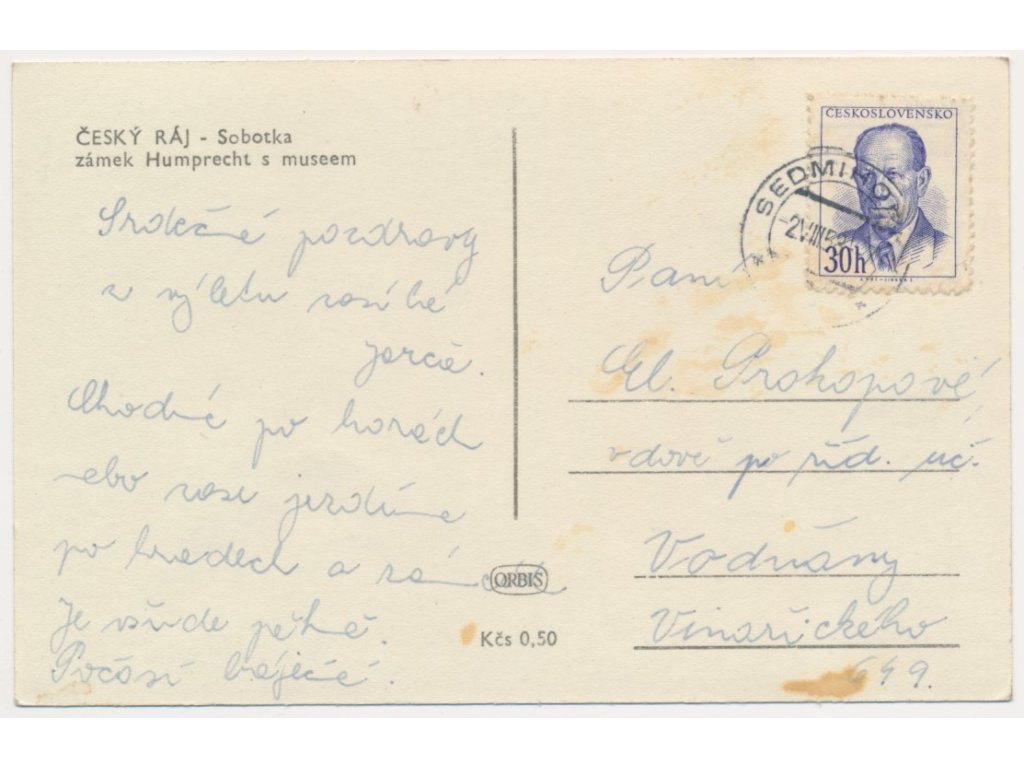 ČESKÝ RÁJ - Sobotka
zámek Humprecht s museem
Srdečné pozdravy
z výletu zasílá
Chodíme po horách
nebo zase jezdíme
po hradech a
Je všude pěkně.
Počasí báječné.
ORBIS
Kčs 0,50
ČESKOSLOVENSKO
30h
SEDMIHORKY
-2.VIII.58
Paní
El. Prokopové
vdově po říd. uč.
Vodňany
Vinařického
649.